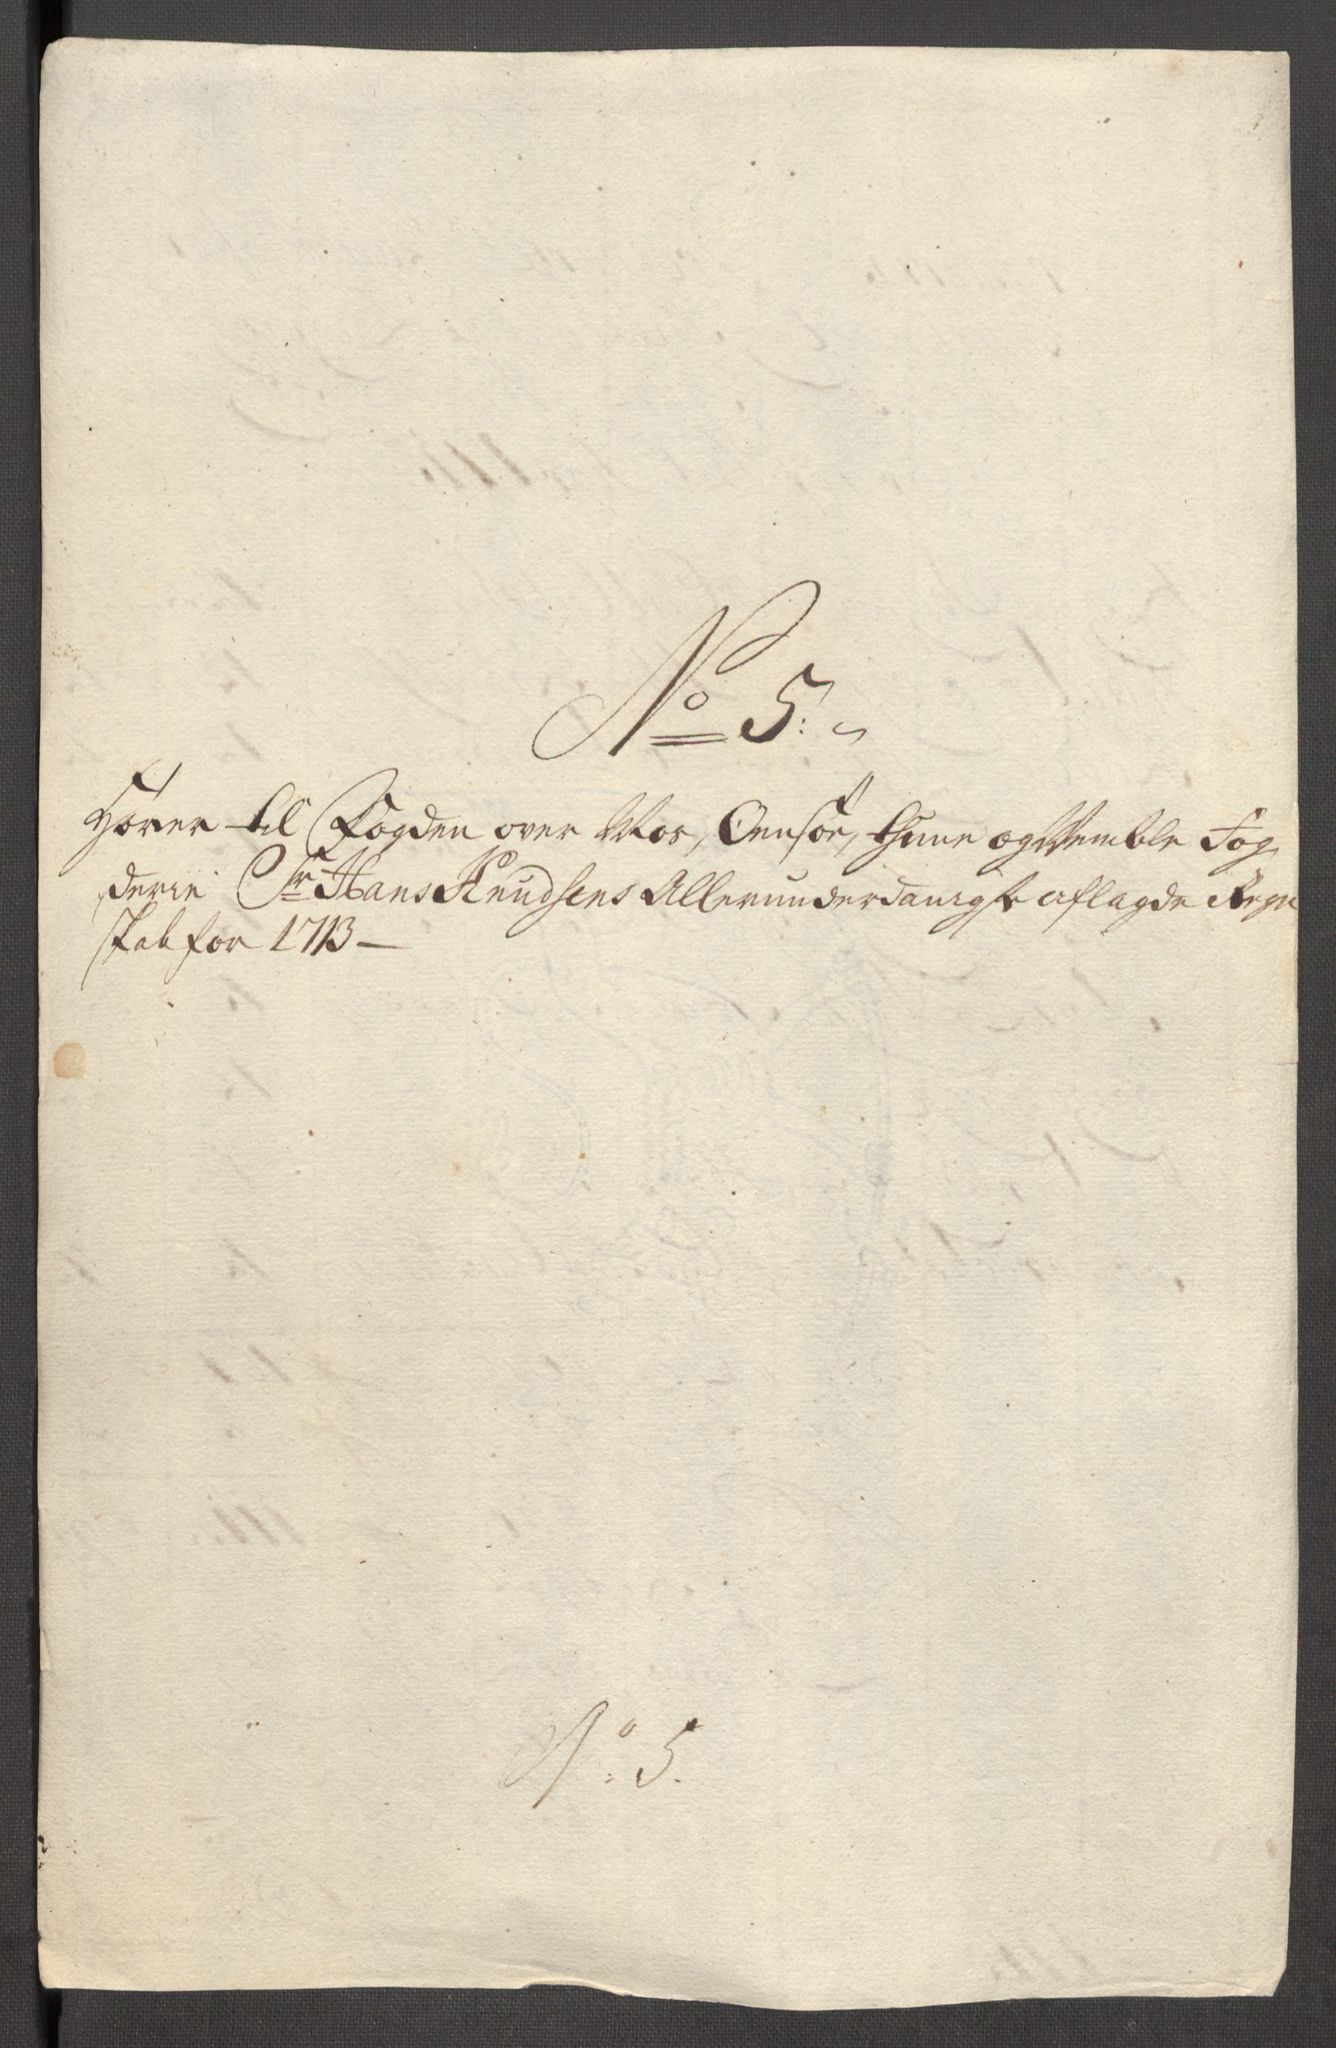 No 5.
Hører til Fogden over Mos, Oensøe, thune og Wemble Fog
derie Sr Hans Knudsens Allerunderdanigst aflagde Regn
skab for 1713 —
No. 5.